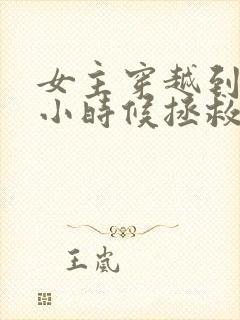 女主穿越到
小時候拯救
王嵐